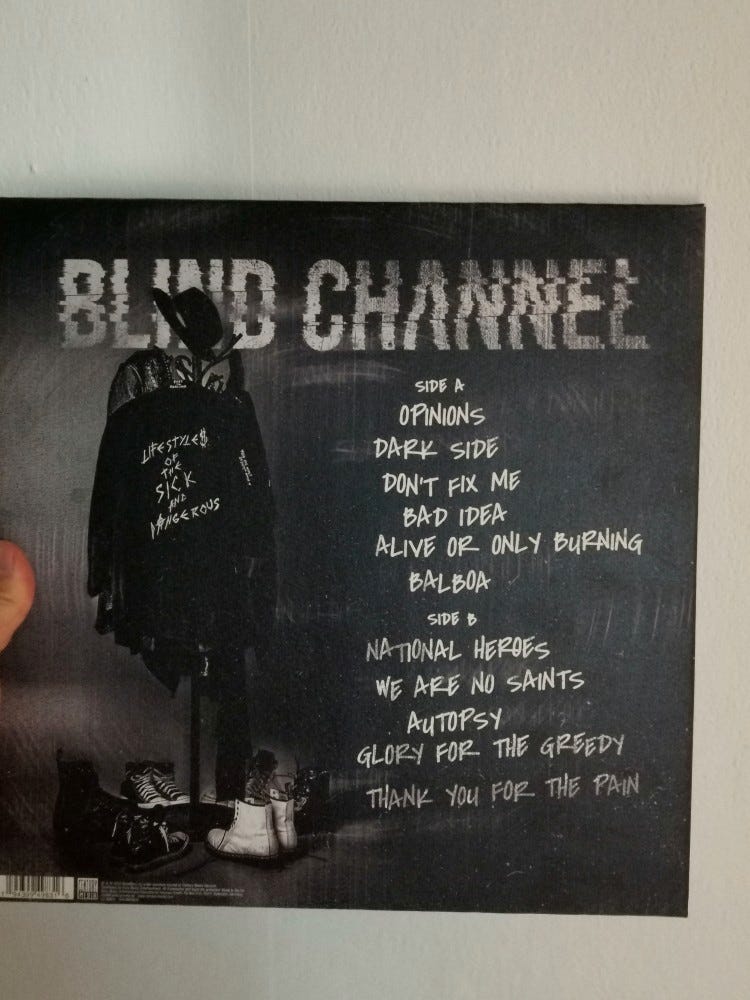 BLIND CHANNEL
LIFESTYLE$
OF
THE
SICK
AND
DANGEROUS
SIDE A
OPINIONS
DARK SIDE
DON'T FIX ME
BAD IDEA
ALIVE OR ONLY BURNING
BALBOA
SIDE B
NATIONAL HEROES
WE ARE NO SAINTS
AUTOPSY
GLORY FOR THE GREEDY
THANK YOU FOR THE PAIN